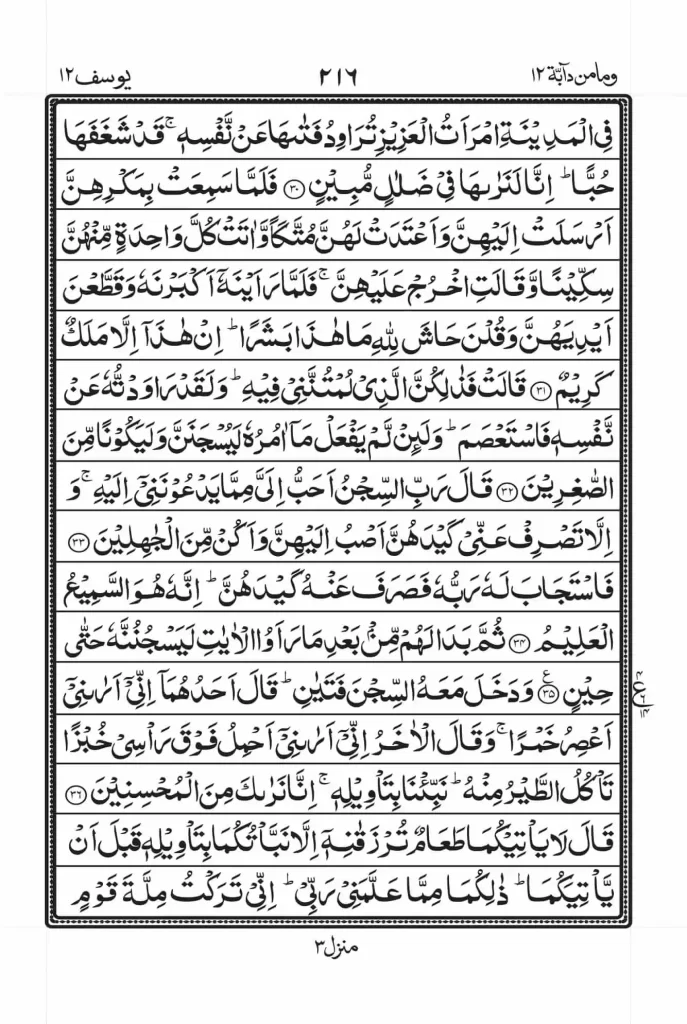 وما من دآبّة ١٢
٢١٦
يوسف ١٢
فِى الْمَدِيْنَةِ امْرَاَتُ الْعَزِيْزِ تُرَاوِدُ فَتٰىهَا عَنْ نَّفْسِهٖ ۚ قَدْ شَغَفَهَا
حُبًّا ؕ اِنَّا لَنَرٰىهَا فِىْ ضَلٰلٍ مُّبِيْنٍ ﴿۳۰﴾ فَلَمَّا سَمِعَتْ بِمَكْرِهِنَّ
اَرْسَلَتْ اِلَيْهِنَّ وَاَعْتَدَتْ لَهُنَّ مُتَّكَاً وَّاٰتَتْ كُلَّ وَاحِدَةٍ مِّنْهُنَّ
سِكِّيْنًا وَّقَالَتِ اخْرُجْ عَلَيْهِنَّ ۚ فَلَمَّا رَاَيْنَهٗۤ اَكْبَرْنَهٗ وَقَطَّعْنَ
اَيْدِيَهُنَّ وَقُلْنَ حَاشَ لِلّٰهِ مَا هٰذَا بَشَرًا ؕ اِنْ هٰذَاۤ اِلَّا مَلَكٌ
كَرِيْمٌ ﴿۳۱﴾ قَالَتْ فَذٰلِكُنَّ الَّذِىْ لُمْتُنَّنِىْ فِيْهِ ؕ وَلَقَدْ رَاوَدْتُّهٗ عَنْ
نَّفْسِهٖ فَاسْتَعْصَمَ ؕ وَلَئِنْ لَّمْ يَفْعَلْ مَاۤ اٰمُرُهٗ لَيُسْجَنَنَّ وَلَيَكُوْنًا مِّنَ
الصّٰغِرِيْنَ ﴿۳۲﴾ قَالَ رَبِّ السِّجْنُ اَحَبُّ اِلَىَّ مِمَّا يَدْعُوْنَنِىْۤ اِلَيْهِ ۚ وَ
اِلَّا تَصْرِفْ عَنِّىْ كَيْدَهُنَّ اَصْبُ اِلَيْهِنَّ وَاَكُنْ مِّنَ الْجٰهِلِيْنَ ﴿۳۳﴾
فَاسْتَجَابَ لَهٗ رَبُّهٗ فَصَرَفَ عَنْهُ كَيْدَهُنَّ ؕ اِنَّهٗ هُوَ السَّمِيْعُ
الْعَلِيْمُ ﴿۳۴﴾ ثُمَّ بَدَا لَهُمْ مِّنْۢ بَعْدِ مَا رَاَوُا الْاٰيٰتِ لَيَسْجُنُنَّهٗ حَتّٰى
حِيْنٍ ﴿۳۵﴾ وَدَخَلَ مَعَهُ السِّجْنَ فَتَيٰنِ ؕ قَالَ اَحَدُهُمَاۤ اِنِّىْۤ اَرٰىنِىْۤ
اَعْصِرُ خَمْرًا ۚ وَقَالَ الْاٰخَرُ اِنِّىْۤ اَرٰىنِىْۤ اَحْمِلُ فَوْقَ رَاْسِىْ خُبْزًا
تَاْكُلُ الطَّيْرُ مِنْهُ ؕ نَبِّئْنَا بِتَاْوِيْلِهٖ ۚ اِنَّا نَرٰىكَ مِنَ الْمُحْسِنِيْنَ ﴿۳۶﴾
قَالَ لَا يَاْتِيْكُمَا طَعَامٌ تُرْزَقٰنِهٖۤ اِلَّا نَبَّاْتُكُمَا بِتَاْوِيْلِهٖ قَبْلَ اَنْ
يَّاْتِيَكُمَا ؕ ذٰلِكُمَا مِمَّا عَلَّمَنِىْ رَبِّىْ ؕ اِنِّىْ تَرَكْتُ مِلَّةَ قَوْمٍ
منزل ٣